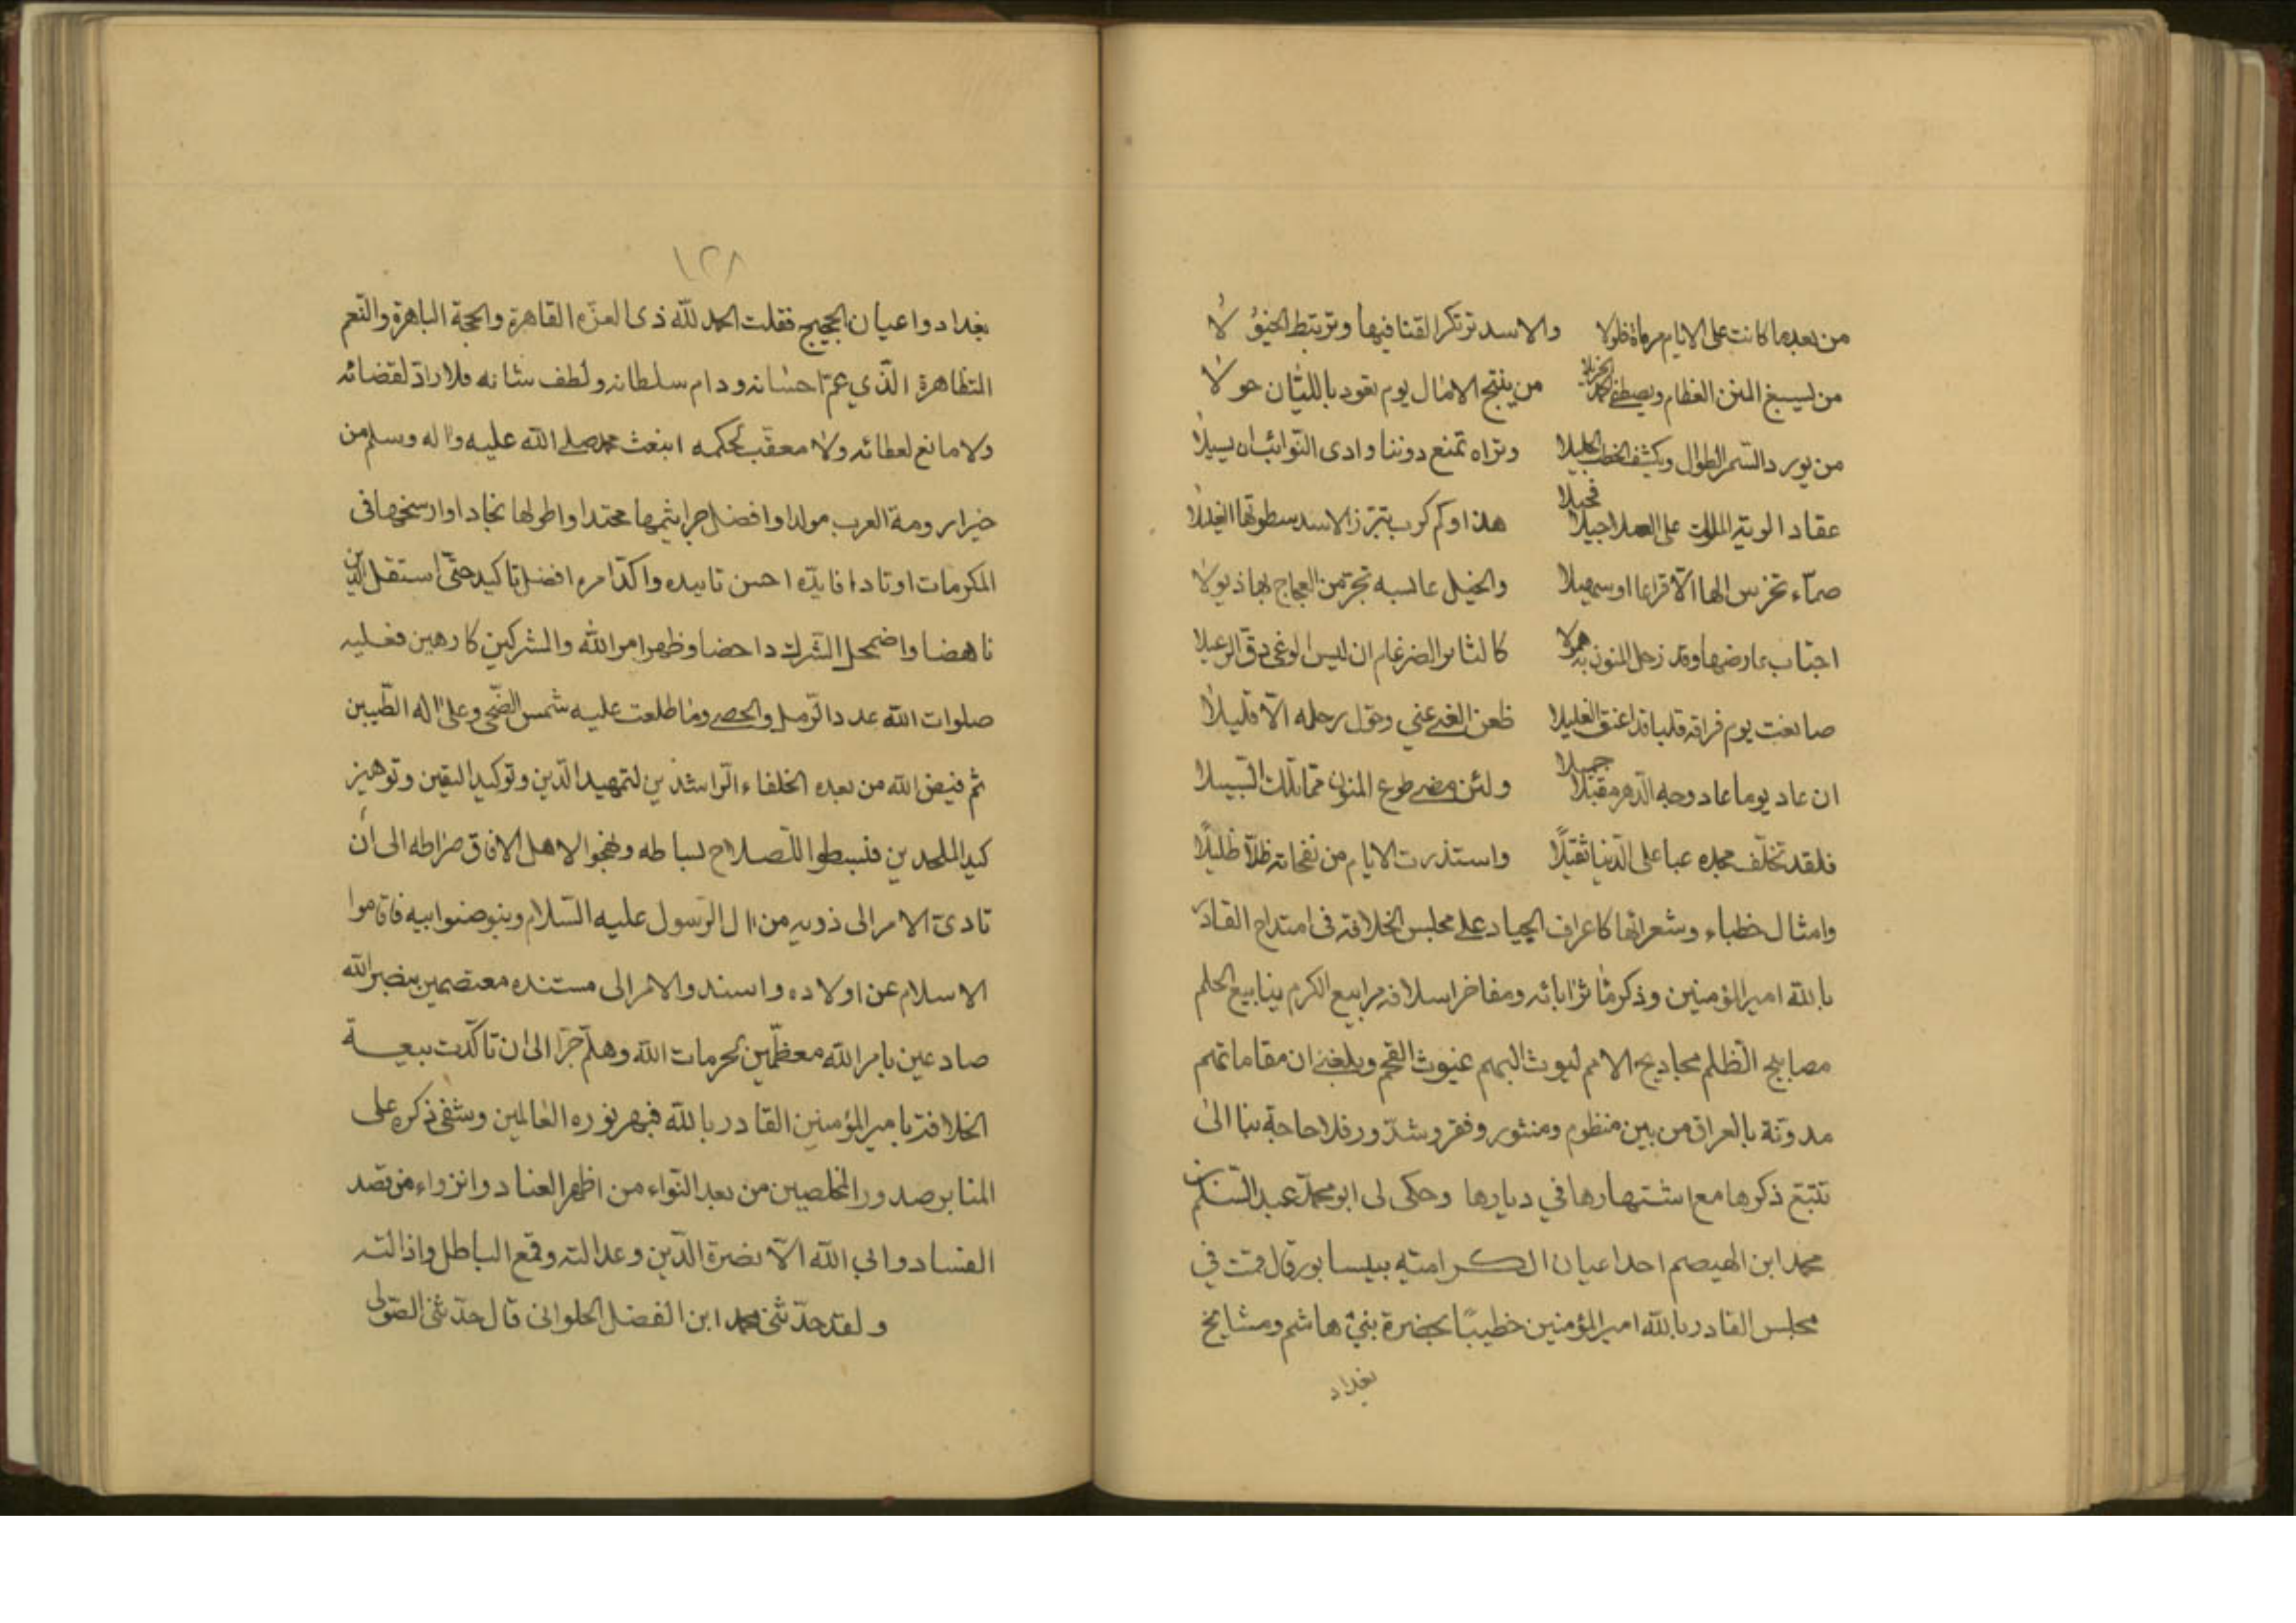 من بعدما كانت على الايام مرماة ظولا والاسد ترتكز القنا فيها وترتبط الخيول
من ليسبغ المنن العظام ويصطفي الحمد الجزيلا من ينتج الامال يوم تعود بالليّان حولا
من يورد السّمر الطوال ويكشف الخطب الجليلا وتراه تمنع دوننا وادى النّوائب ان يسيلا
عقاد الوية الملوك على العدا جيلا فجيلا هذا وكم كرب تبتز الاسد سطوتها الغيلا
صمّاء تخرس الها الّا قراعا او سهيلا والخيل عابسه تجرّ من العجاج بها ذيولا
اجتاب عارضها وقد زحل المنون به همولا كالثائر الضرغام ان لبس الوغى دقّ الرعيلا
صانعت يوم فراقه قلبا قد اعتنق الغليلا ظعن الغنى عني وحوّل رحله الّا قليلا
ان عاد يوما عاد وجه الدّهر مقتبلا جميلا ولئن مضى طوع المنون ميمّما تلك السّبيلا
فلقد تخلّف مجده عبا على الدّنيا ثقيلًا واستذرت الايام من نفحاته ظلّا ظليلًا
وامثال خطباء وشعرائها كاعراف الجياد على مجلس الخلافة فى امتداح القادر
بالله امير المؤمنين وذكر مآثر ابائه ومفاخر اسلافه مرابيع الكرم ينابيع الحلم
مصابيح الظلم مجاديح الامم ليوث البهم غيوث القحم وبلغني ان مقاماتهم
مدوّنة بالعراق من بين منظوم ومنثور وفقر وشذور فلا حاجة بنا الى
تتبّع ذكرها مع اشتهارها في ديارها وحكى لى ابو محمّد عبد السّلم بن
محمد ابن الهيصم احد اعيان الكراميّه بنيسابور قال قمت في
مجلس القادر بالله امير المؤمنين خطيبًا بحضرة بني هاشم ومشايخ
بغداد
١٢٨
بغداد واعيان الحجيج فقلت الحمد للّه ذى العزّه القاهرة والحجة الباهرة والنّعم
المتظاهرة الّذي عمّ احسانه ودام سلطانه ولطف شانه فلا رادّ لقضائه
ولا مانع لعطائه ولا معقّب لحكمه ابتعث محمد صلى الله عليه واله وسلم من
خير ارومة العرب مولدا وافضل جراثيمها محتدا واطولها نجادا وارسخها فى
المكرمات اوتادا فايّده احسن تاييده واكّد امره افضل تاكيد حتّى استقل الدين
ناهضا واضمحل الشرك داحضا وظهر امر الله والمشركين كارهين فعليه
صلوات الله عدد الرّمل والحصى وما طلعت عليه شمس الضّحى وعلى اله الطّيبين
ثم قيض الله من بعده الخلفاء الرّاشدين لتمهيد الدّين وتوكيد اليقين وتوهين
كيد الملحدين فبسطوا للصلاح بساطه ونهجوا لاهل الافاق صراطه الى أن
تادىّ الامر الى ذويه من ال الرسول عليه السّلام وبنو صنو ابيه فاقاموا
الاسلام عن اولاده واسندوالامر الى مستنده معتصمين بنصر الله
صادعين بامر الله معظّمين لحرمات الله وهلّم جرّا الى ان تاكّدت بيعة
الخلافة بامير المؤمنين القادر بالله فبهر نوره العالمين وشفى ذكره على
المنابر صدور المخلصين من بعد التواء من اظهر العناد وانزواء من قصد
الفساد وابى الله الّا نصرة الدّين وعدالته وقمع الباطل واذالته
ولقد حدّثنى محمد ابن الفضل الحلوانى قال حدّثنى الصّولى